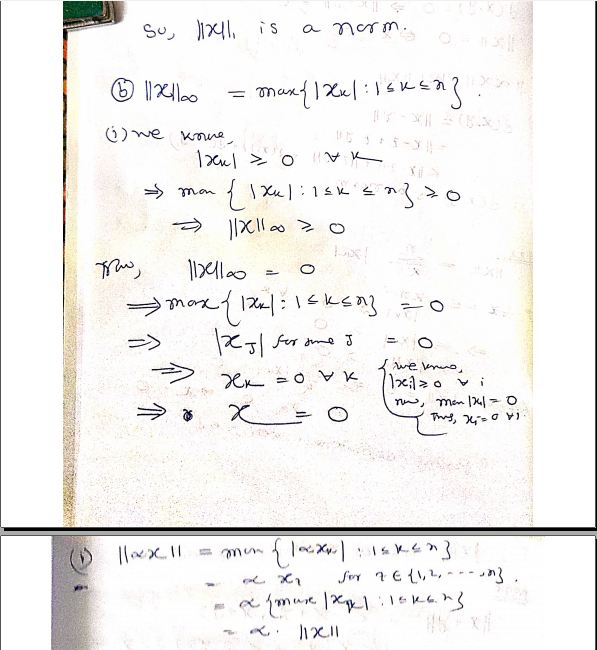 So, ||x||₁ is a norm.
(b) ||x||∞ = max{|xₖ| : 1 ≤ k ≤ n}.
(i) we know,
|xₖ| ≥ 0 ∀ k
⇒ max {|xₖ| : 1 ≤ k ≤ n} ≥ 0
⇒ ||x||∞ ≥ 0
Now, ||x||∞ = 0
⇒ max{|xₖ| : 1 ≤ k ≤ n} = 0
⇒ |x_J| for some J = 0
⇒ xₖ = 0 ∀ k
{ we know,
|xᵢ| ≥ 0 ∀ i
now, max |xᵢ| = 0
Thus, xᵢ = 0 ∀ i
⇒ x = 0
||αx|| = max {|αxₖ| : 1 ≤ k ≤ n}
= α x₂ for 2 ∈ {1, 2, ----, n}.
= α {max |xₖ| : 1 ≤ k ≤ n}
= α. ||x||